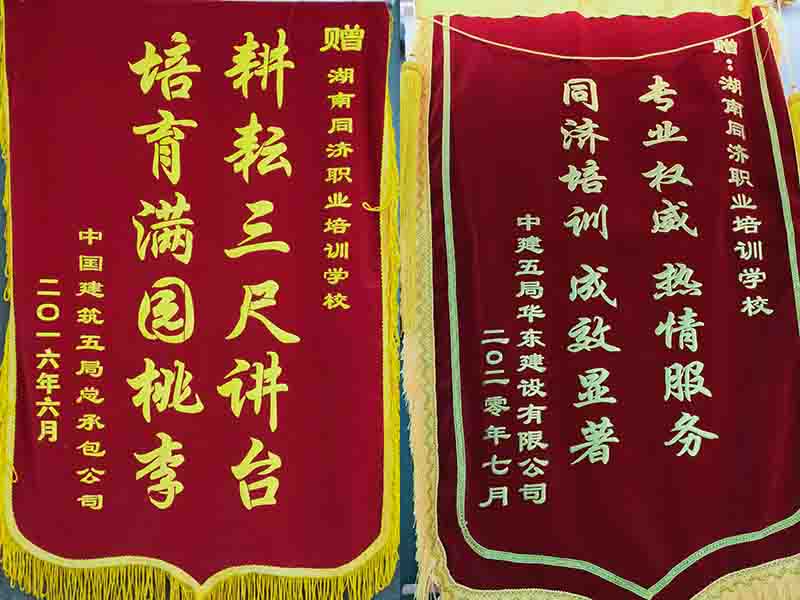 赠
湖南同济职业培训学校
耕耘三尺讲台
培育满园桃李
中国建筑五局总承包公司
二〇一六年六月
赠：湖南同济职业培训学校
专业权威 热情服务
同济培训 成效显著
中建五局华东建设有限公司
二〇二零年七月